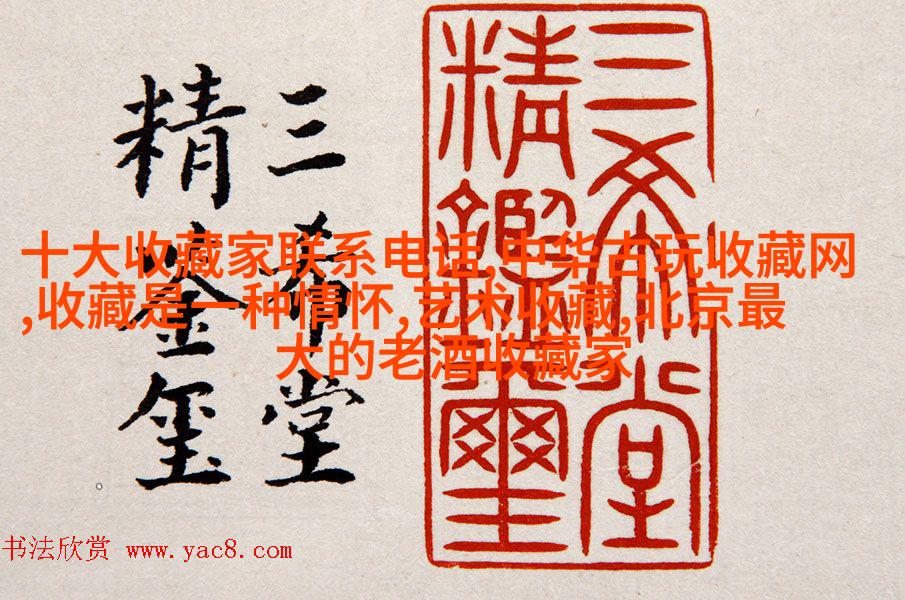 三希堂
精鉴玺
三希堂
精鑑璽
十大收藏家联系电话,中华古玩收藏网
,收藏是一种情怀,艺术收藏,北京最
大的老酒收藏家
书法欣赏 www.yac8.com